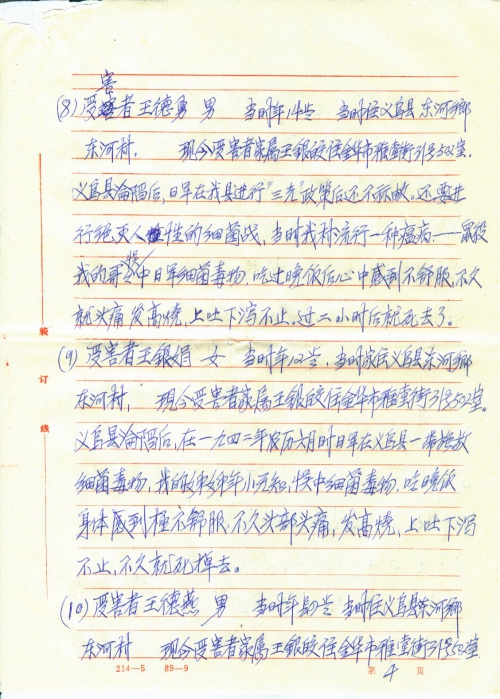 害
(8) 受害者王德勇 男 当时年14岁 当时住义乌县东河鄉
东河村, 现今受害者家属王银皎住金华市雅堂街31号502室.
义乌县沦陷后,日军在我县进行"三光"政策后还不称故.还要进
行绝灭人性的细菌战,当时我村流行一种瘟病.——鼠疫
我的哥误中日军细菌毒物.吃过晚饭后心中感到不舒服,不久
就头痛发高烧,上吐下泻不止.过二小时后就死去了。
(9) 受害者王银娟 女 当时年12岁,当时家住义乌县东河鄉
东河村, 现今受害者家属王银皎住金华市雅堂街31号502室.
义乌县沦陷后,在一九四二年农历六月时日军在义乌县一带撒放
细菌毒物,我的妹妹年小无知,误中细菌毒物.吃晚饭
身体感到極不舒服,不久头部头痛,发高烧,上吐下泻
不止,不久就死掉去。
(10) 受害者王德燕 男 当时年 岁 当时住义乌县东河鄉
东河村 现今受害者家属王银皎住金华市雅堂街31号502室
装
订
线
214—5 89—9
第 4 页